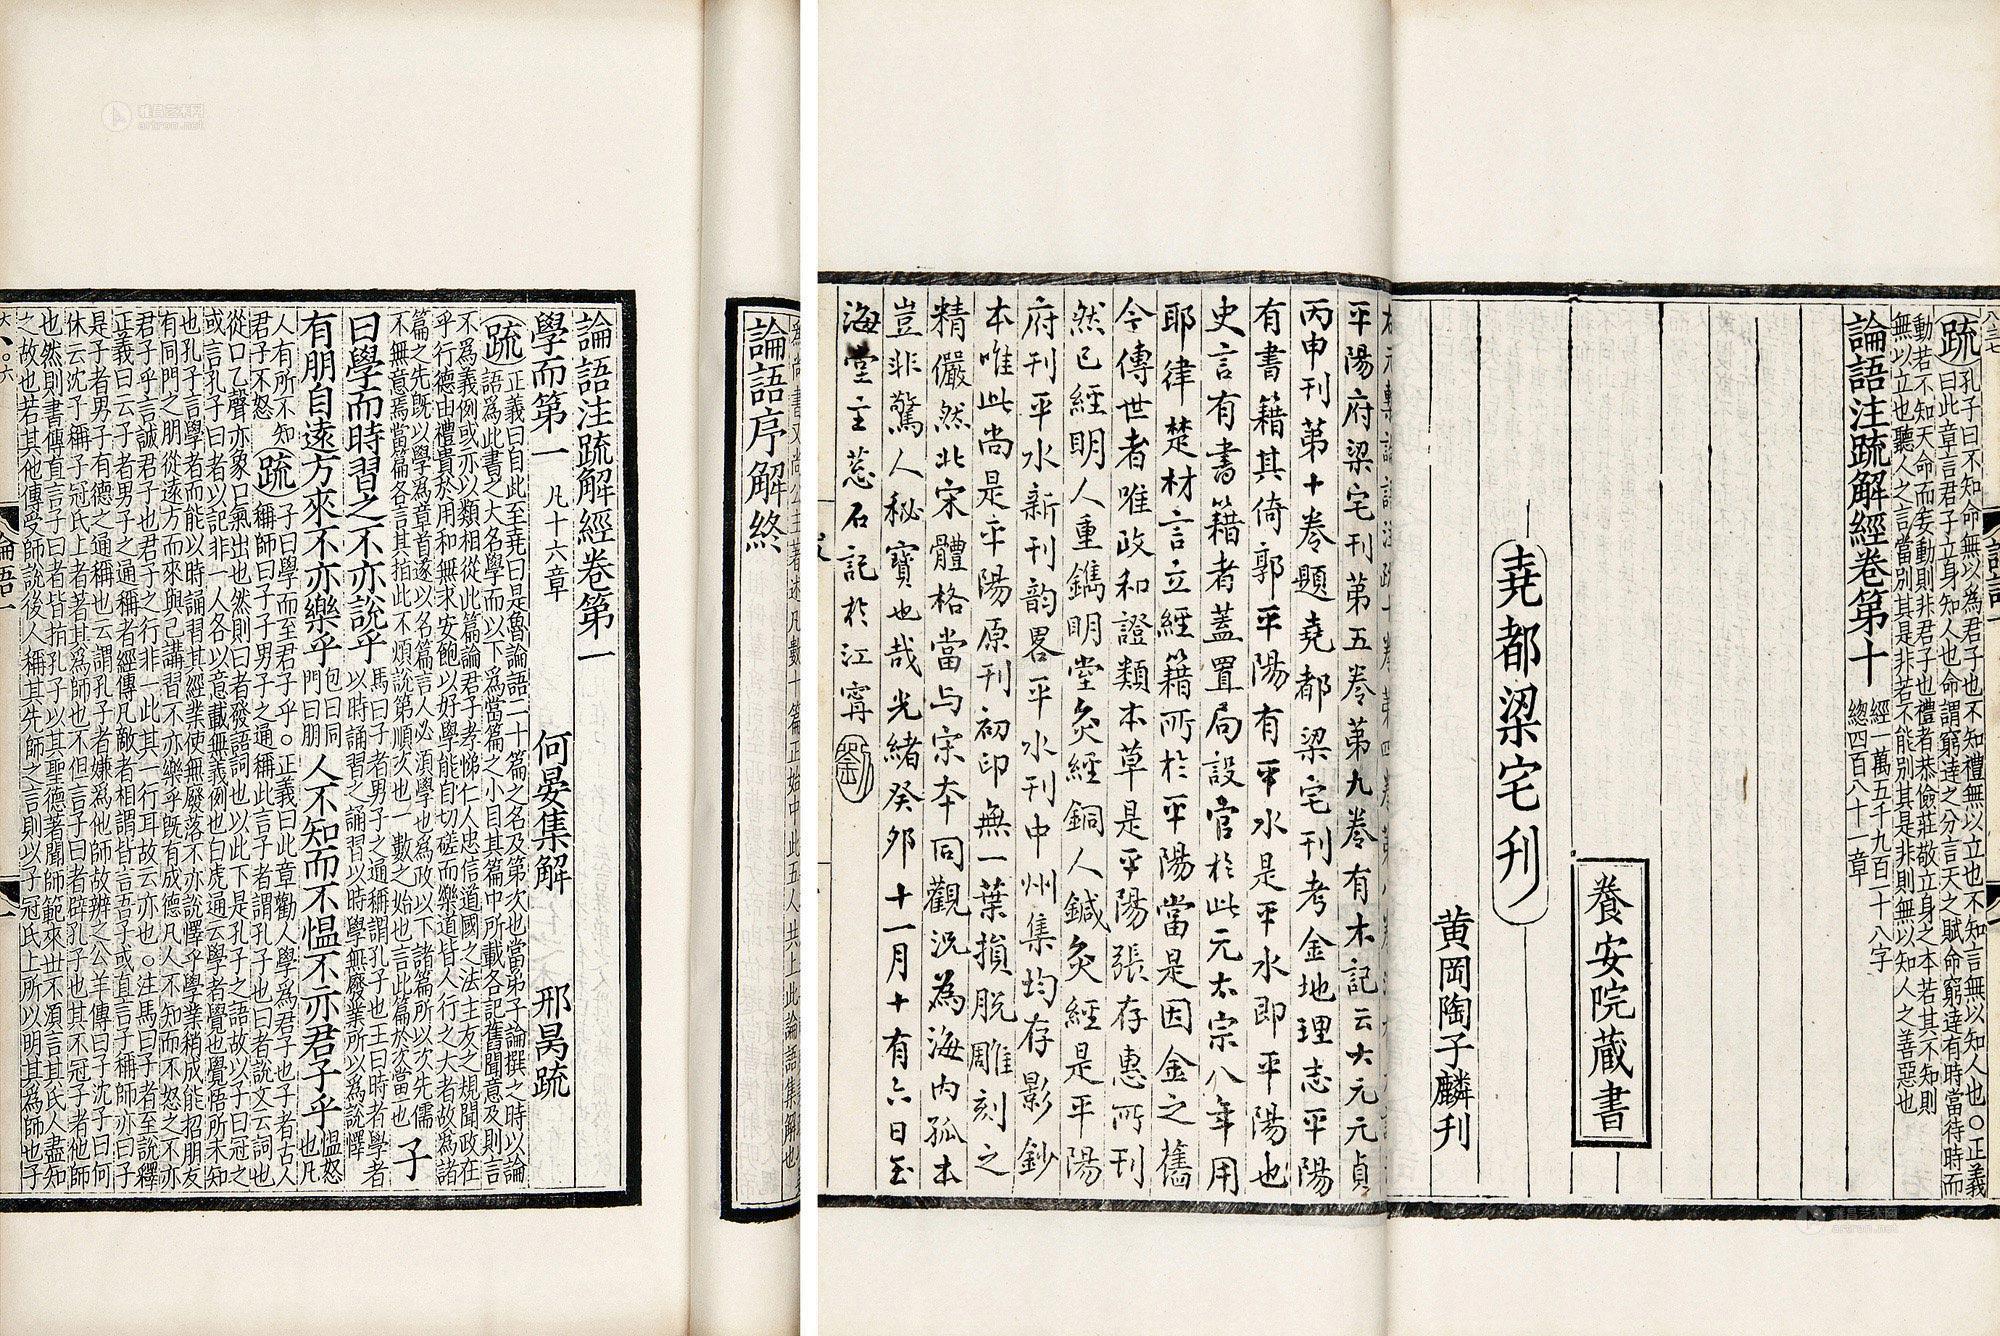 爲尚書又尚公主著述凡數十篇正始中此五人共上此論語集解也
論語序解終
論語注疏解經卷第一
學而第一 凡十六章 何晏集解 邢昺疏
疏 正義曰自此至堯曰是魯論語二十篇之名及第次也當弟子論撰之時以論
語爲此書之大名學而以下爲當篇之小目其篇中所載各記舊聞意及則言
不爲義例或亦以類相從此篇論君子孝悌仁人忠信道國之法主友之規聞政在
乎行德由禮貴於用和無求安飽以好學能自切磋而樂道皆人行之大者故爲諸
篇之先旣以學爲章首遂以名篇言人必須學也爲政以下諸篇所以次先儒
不無意焉當篇各言其指此不煩說第順次也一數之始也言此篇於次當一也
子
曰學而時習之不亦說乎 馬曰子者男子之通稱謂孔子也王曰時者學者
以時誦習之誦習以時學無廢業所以爲說懌
有朋自遠方來不亦樂乎 包曰同
門曰朋 人不知而不慍不亦君子乎 慍怒
也凡
人有所不知
君子不怒 疏 子曰學而至君子乎○正義曰此章勸人學爲君子也子者古人
稱師曰子子男子之通稱此言子者謂孔子也曰者說文云詞也
從口乙聲亦象口氣出也然則曰者發語詞也以此下是孔子之語故以子曰冠之
或言孔子曰者以記非一人各以意載無義例也白虎通云學者覺也覺悟所未知
也孔子言學者而能以時誦習其經業使無廢落不亦說懌乎學業稍成能招朋友
有同門之朋從遠方而來與己講習不亦樂乎旣有成德凡人不知而不怒之不亦
君子乎言誠君子也君子之行非一此其一行耳故云亦也○注馬曰子者至說懌
正義曰云子者男子之通稱者經傳凡敵者相謂皆言吾子或直言子稱師亦曰子
是子者男子有德之通稱也云謂孔子者嫌爲他師故辨之公羊傳曰子沈子曰何
休云沈子稱子冠氏上者著其爲師也不但言子曰者辟孔子也其不冠子者他師
也然則書傳直言子曰者皆指孔子以其聖德著聞師範來世不須言其氏人盡知
之故也若其他傳受師說後人稱其先師之言則以子冠氏上所以明其爲師也子
論語一
疏 孔子曰不知命無以為君子也不知禮無以立也不知言無以知人也○正義
曰此章言君子立身知人也命謂窮達之分言天之賦命窮達有時當待時而
動若不知天命而妄動則非君子也禮者恭儉莊敬立身之本若其不知則
無以立也聽人之言當別其是非若不能別其是非則無以知人之善惡也
論語注疏解經卷第十 經一萬五千九百二十八字
總四百八十一章
養安院蔵書
堯都梁宅刊
黄岡陶子麟刊
平陽府梁宅刊第五卷第九卷有木記云大元元貞
丙申刊第十卷題堯都梁宅刊考金地理志平陽
有書籍其倚郭平陽有平水是平水即平陽也
史言有書籍者蓋置局設官於此元太宗八年用
耶律楚材言立經籍所於平陽當是因金之舊
今傳世者唯政和證類本草是平陽張存惠所刊
然已經明人重鐫明堂灸經銅人鍼灸經是平陽
府刊平水新刊韵畧平水刊中州集均存影鈔
本唯此尚是平陽原刊初印無一葉損脫雕刻之
精儼然北宋體格當与宋本同觀況為海内孤本
豈非驚人秘寶也哉光緒癸卯十一月十有六日玉
海堂主蔥石記於江寗